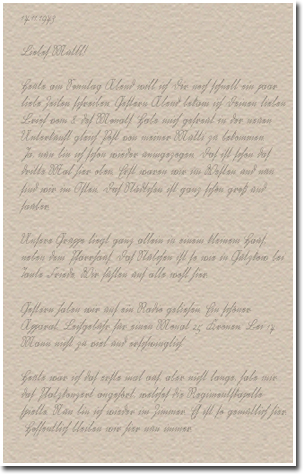 14.11.1943
Liebes Mutti!
Heute am Sonntag Abend will ich Dir noch schnell ein paar
liebe Zeilen schreiben. Gestern Abend bekam ich Deinen lieben
Brief vom 8. des Monats. Habe mich gefreut in der neuen
Unterkunft gleich Post von meiner Mutti zu bekommen.
Ja nun bin ich schon wieder umgezogen. Das ist schon das
dritte Mal hier oben. Erst waren wir im Westen und nun
sind wir im Osten. Das Städtchen ist ganz schön groß und
sauber.
Unsere Gruppe liegt ganz allein in einem kleinem Haus,
neben dem Pfarrhaus. Das Städtchen ist so wie in bei
Tante Friede. Wir fühlen uns alle wohl hier.
Gestern haben wir uns ein Radio geliehen. Ein schöner
Apparat. Leihgebühr für einen Monat 25 Kronen. Bei 17
Mann nicht zu viel und erschwinglich.
Heute war ich das erste mal aus, aber nicht lange, habe mir
das Platzkonzert angehört, welches die Regimentskapelle
spielte. Nun bin ich wieder im Zimmer. Es ist so gemütlich hier.
Hoffentlich bleiben wir hier nun immer.